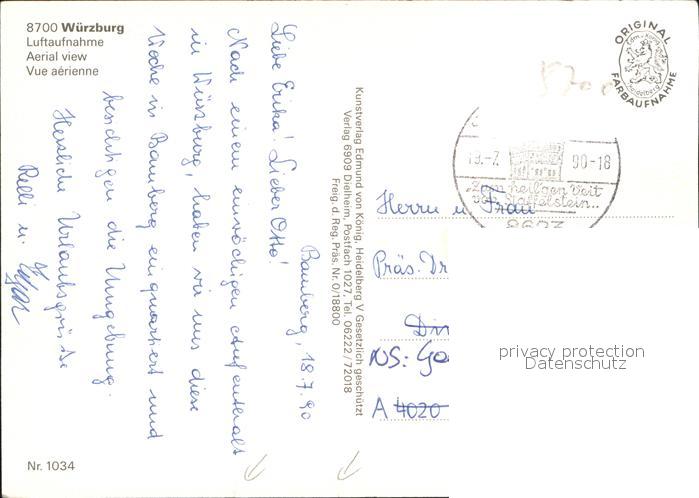 8700 Würzburg
Luftaufnahme
Aerial view
Vue aérienne
Bamberg, 18.7.90
Liebe Erika! Lieber Otto!
Nach einem einwöchigen Aufenthalt
in Würzburg, haben wir uns diese
Woche in Bamberg einquartiert und
besichtigen die Umgebung.
Herzliche Urlaubsgrüsse
Relli u.
Nr. 1034
Kunstverlag Edmund von König, Heidelberg V Gesetzlich geschützt
Verlag 6909 Dielheim, Postfach 1027, Tel. 06222/72018
Freig. d. Reg. Präs. Nr. 0/18800
ORIGINAL
FARBAUFNAHME
Edm. v. König
Heidelberg
5700
19.-7. 90-18
„Zum heil'gen Veit
von Staffelstein..
8623
Herrn u. Frau
Präs. Dr
Din
NS: Go
A 4020
privacy protection
Datenschutz